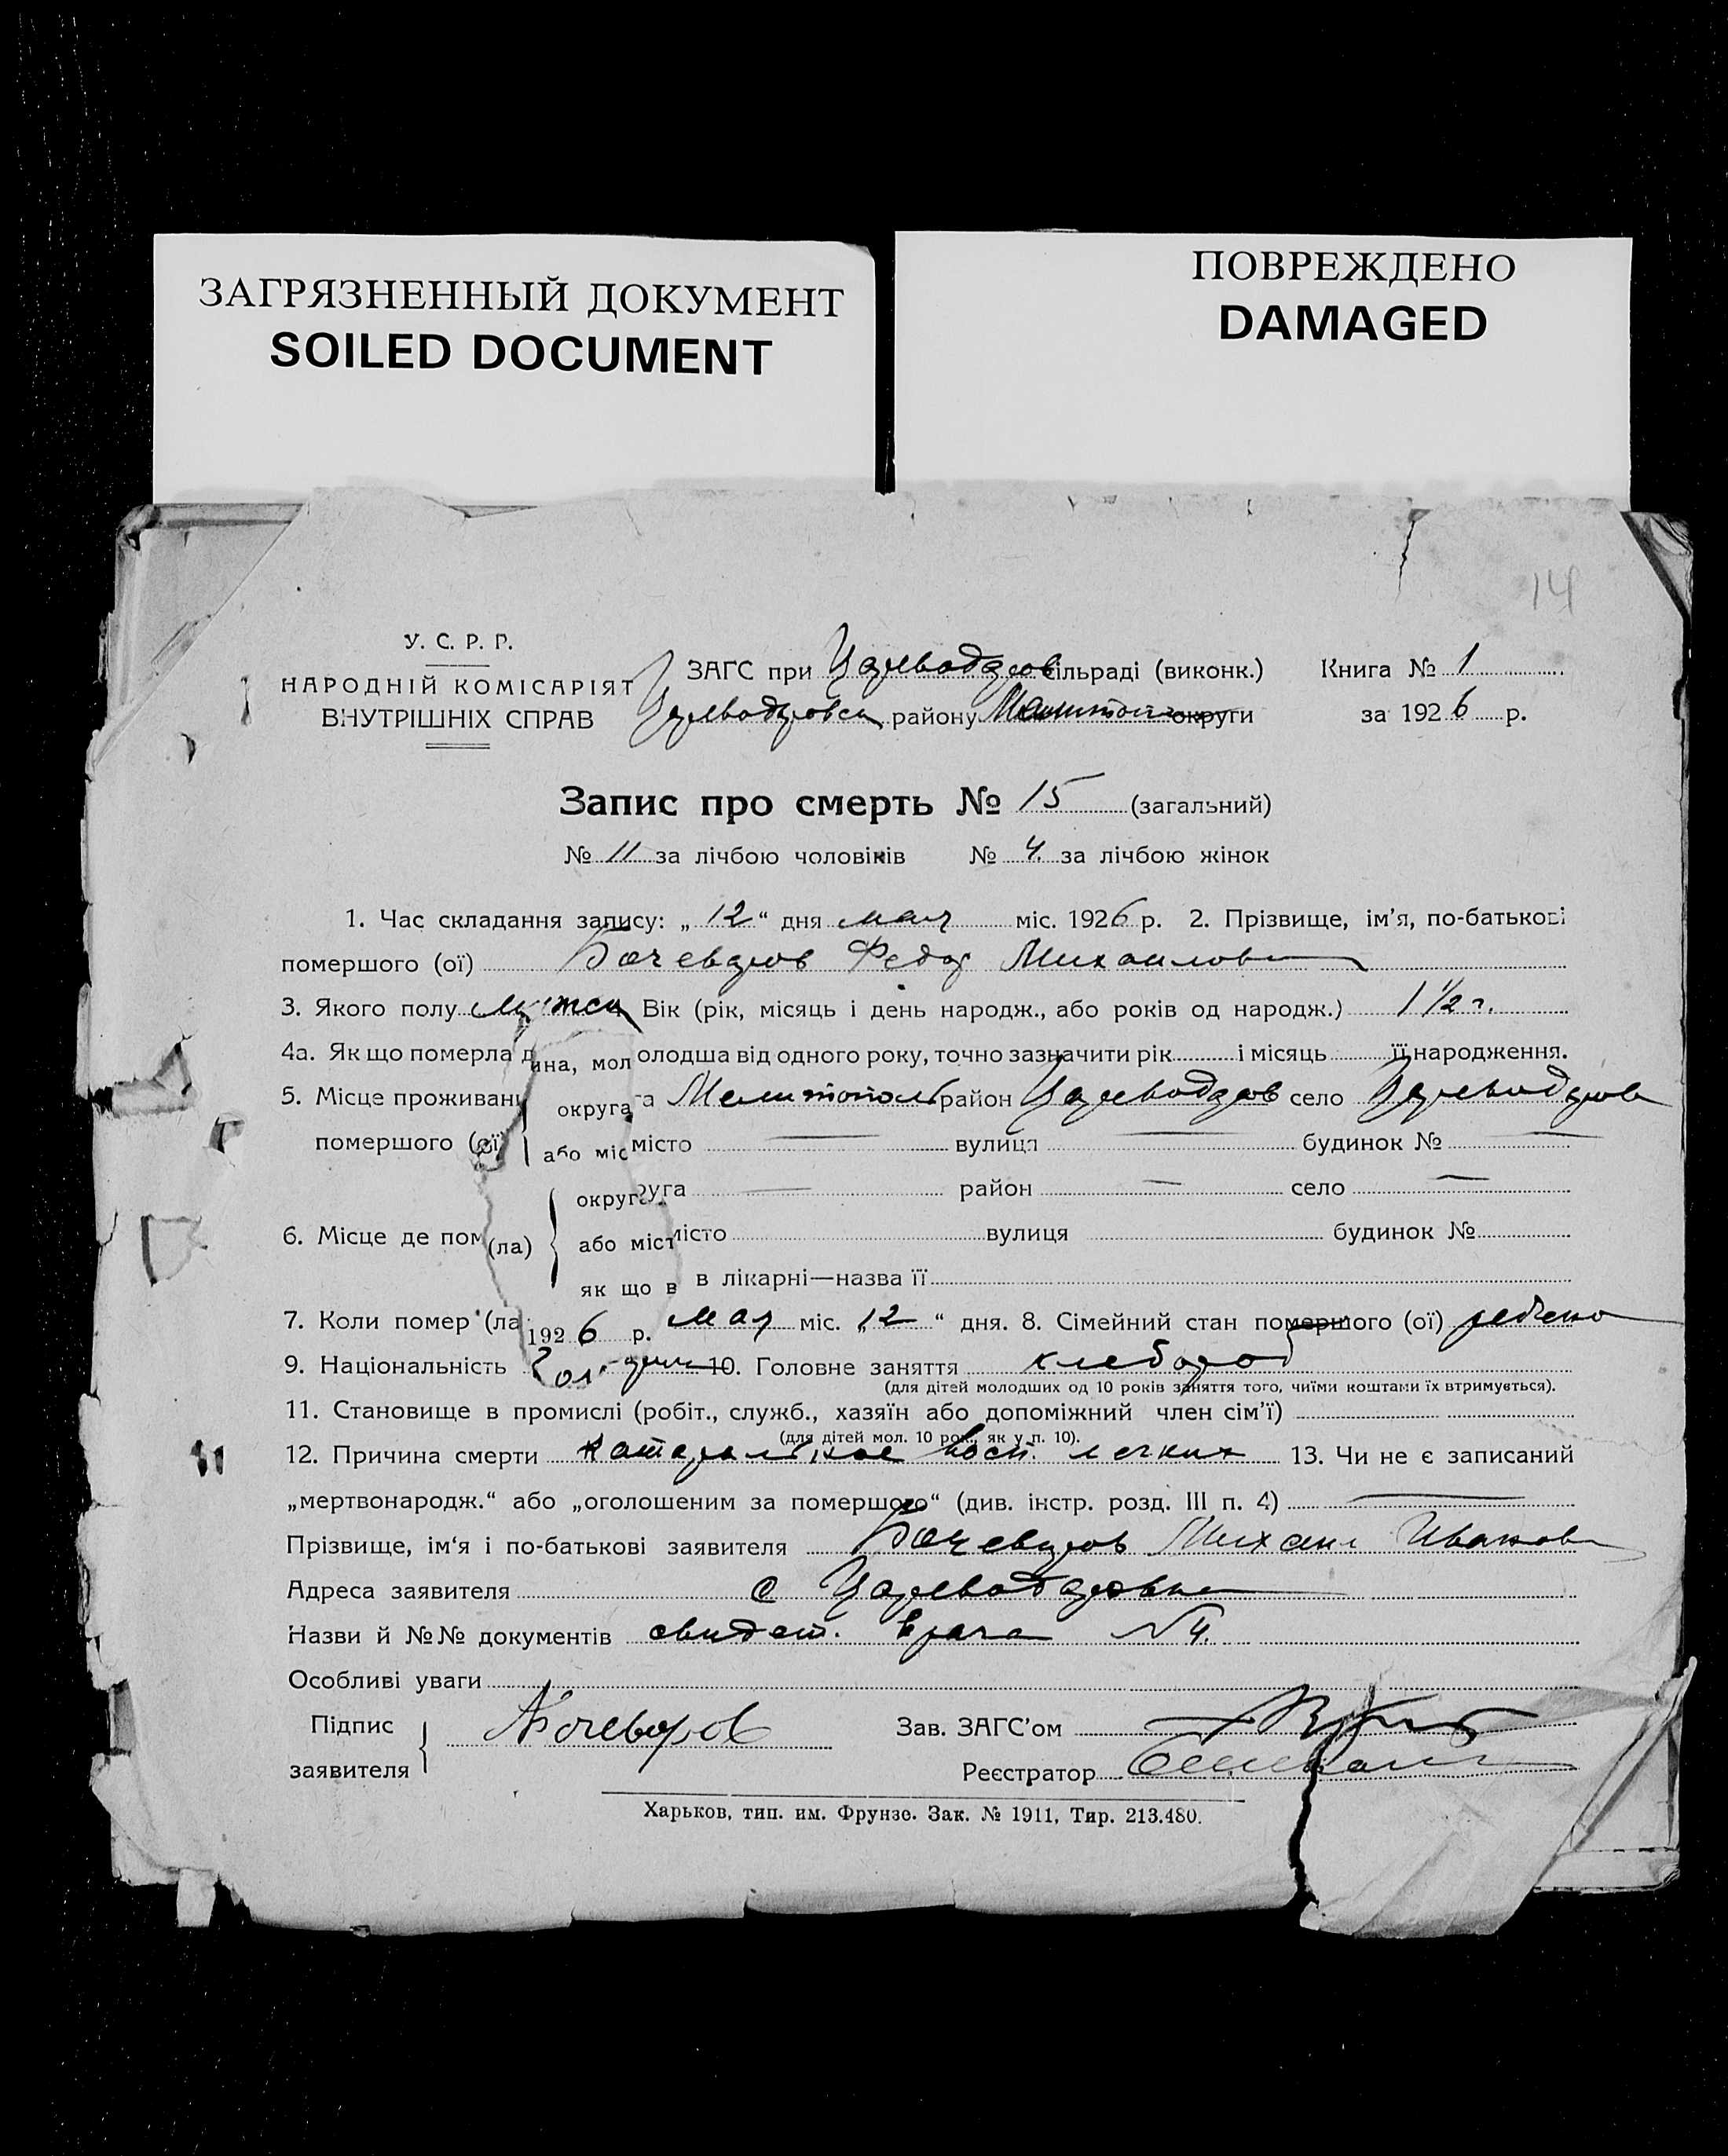 ЗАГРЯЗНЕННЫЙ ДОКУМЕНТ
SOILED DOCUMENT
ПОВРЕЖДЕНО
DAMAGED
14
У. С. Р. Р.
НАРОДНІЙ КОМІСАРІЯТ
ВНУТРІШНІХ СПРАВ
ЗАГС при Цареводаров сільраді (виконк.) Книга № 1
Цареводаровск району Мелитоп округи за 1926 р.
Запис про смерть № 15 (загальний)
№ 11 за лічбою чоловіків № 4. за лічбою жінок
1. Час складання запису: „12“ дня мая міс. 1926 р. 2. Прізвище, ім'я, по-батькові
помершого (ої) Бачеваров Федор Михаилов
3. Якого полу мужск Вік (рік, місяць і день народж., або років од народж.) 1 1/2 г.
4а. Як що померла д ина, мол олодша від одного року, точно зазначити рік і місяць її народження.
5. Місце проживан округа Мелитополь район Цареводаров село Цареводаров
помершого (ої) або міс місто — вулиця — будинок № —
округа — район — село —
6. Місце де пом (ла) або міст місто вулиця будинок №
як що в в лікарні—назва її
7. Коли помер (ла 1926 р. мая міс. „12“ дня. 8. Сімейний стан помершого (ої) ребенок
9. Національність 10. Головне заняття хлебороб
(для дітей молодших од 10 років заняття того, чиїми коштами їх втримується).
11. Становище в промислі (робіт., служб., хазяїн або допоміжний член сім'ї)
(для дітей мол. 10 рок., як у п. 10).
12. Причина смерти катаральное восп. легких 13. Чи не є записаний
„мертвонародж.“ або „оголошеним за помершого“ (див. інстр. розд. III п. 4) —
Прізвище, ім'я і по-батькові заявителя Бачеваров Михаил Иванов
Адреса заявителя с Цареводаровка
Назви й №№ документів свидет. врача № 4.
Особливі уваги
Підпис заявителя Бочеваров Зав. ЗАГС'ом
Реєстратор
Харьков, тип. им. Фрунзе. Зак. № 1911, Тир. 213.480.